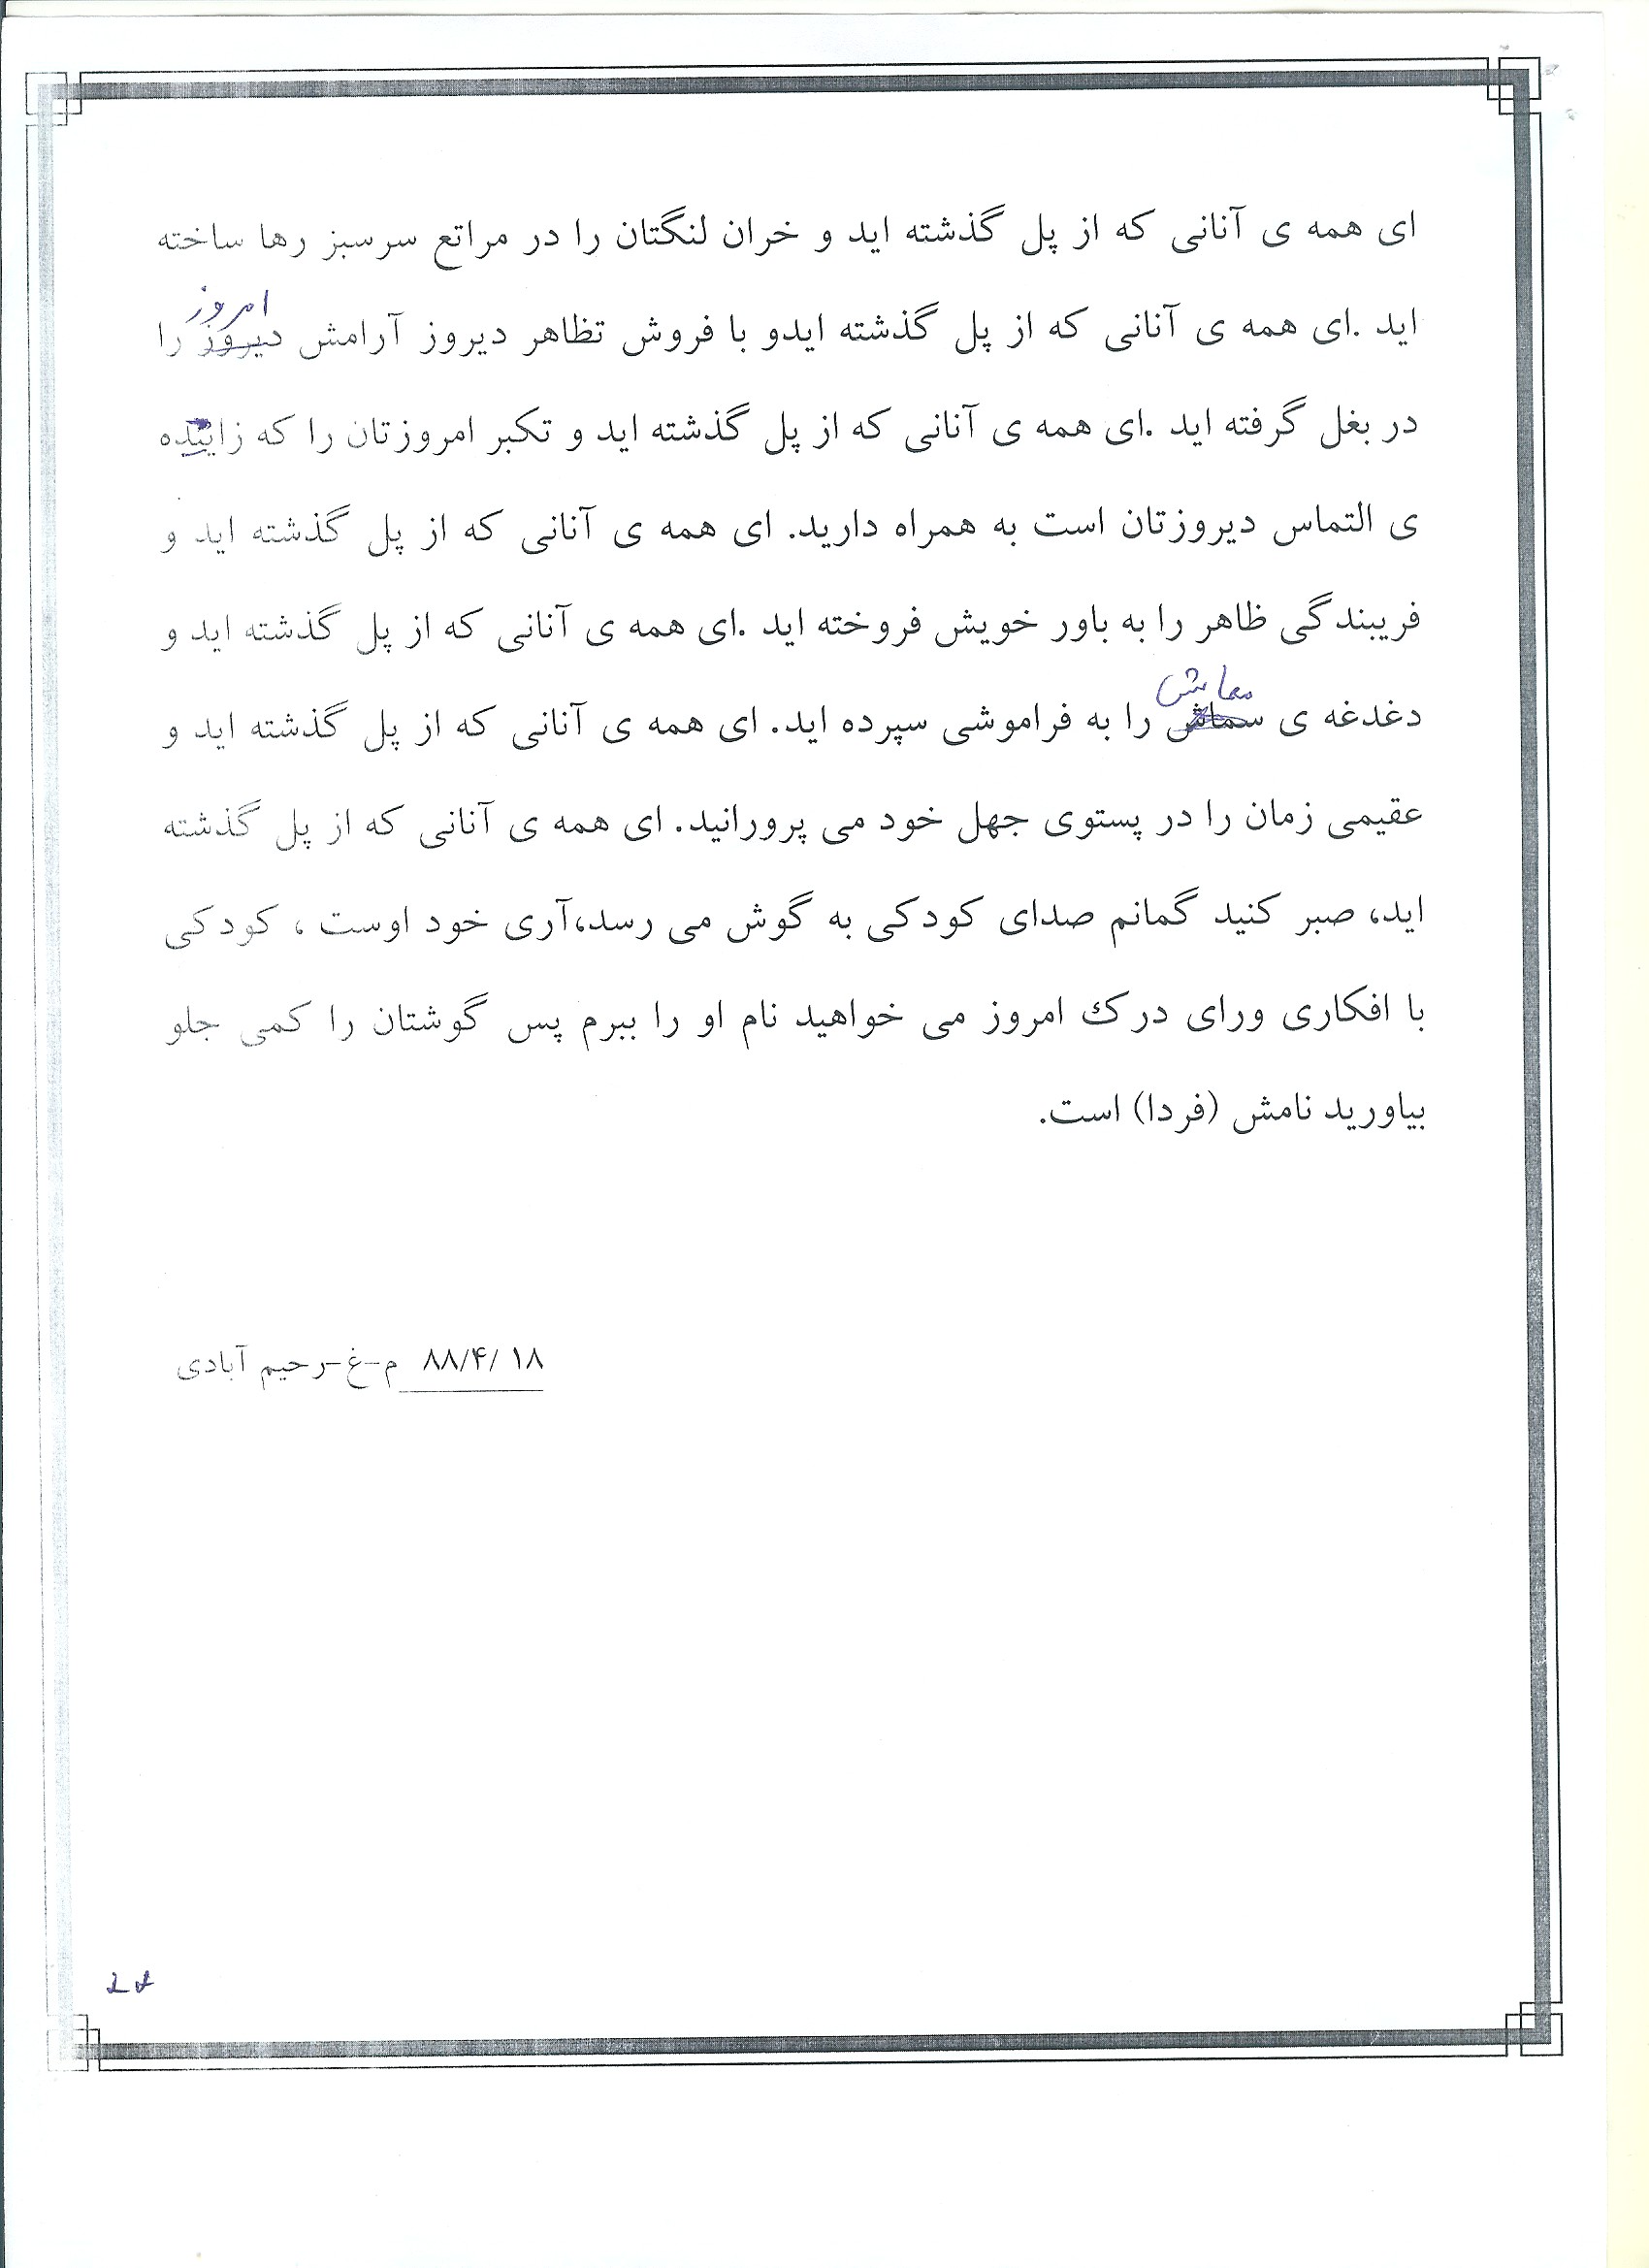 ای همه ی آنانی که از پل گذشته اید و خران لنگتان را در مراتع سرسبز رها ساخته
امروز
اید .ای همه ی آنانی که از پل گذشته ایدو با فروش تظاهر دیروز آرامش دیروز را
در بغل گرفته اید .ای همه ی آنانی که از پل گذشته اید و تکبر امروزتان را که زاییده
ی التماس دیروزتان است به همراه دارید. ای همه ی آنانی که از پل گذشته اید و
فریبندگی ظاهر را به باور خویش فروخته اید .ای همه ی آنانی که از پل گذشته اید و
معایش
دغدغه ی سماش را به فراموشی سپرده اید. ای همه ی آنانی که از پل گذشته اید و
عقیمی زمان را در پستوی جهل خود می پرورانید. ای همه ی آنانی که از پل گذشته
اید، صبر کنید گمانم صدای کودکی به گوش می رسد،آری خود اوست ، کودکی
با افکاری ورای درک امروز می خواهید نام او را ببرم پس گوشتان را کمی جلو
بیاورید نامش (فردا) است.
۸۸/۴/۱۸ م-غ-رحیم آبادی